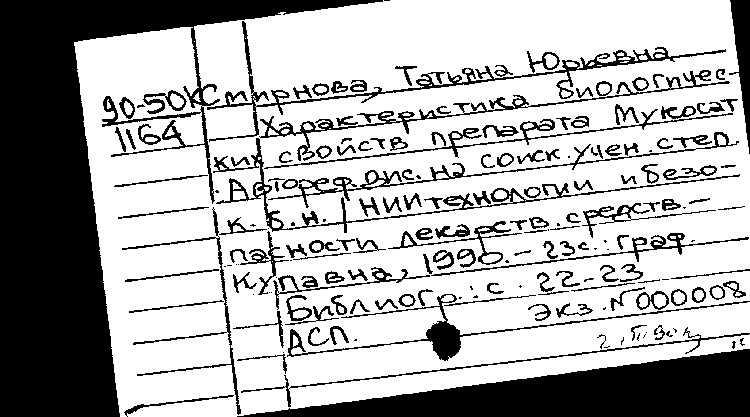 90-50К Смирнова, Татьяна Юрьевна
1164 Характеристика биологичес-
ких свойств препарата Мукосат
. Автореф. дис. на соиск. учен. степ.
к. б. н. / НИИ технологии и безо-
пасности лекарств. средств. -
Купавна, 1990. - 23 с.: граф.
Библиогр.: с. 22-23
Экз. N 000008
АСП.